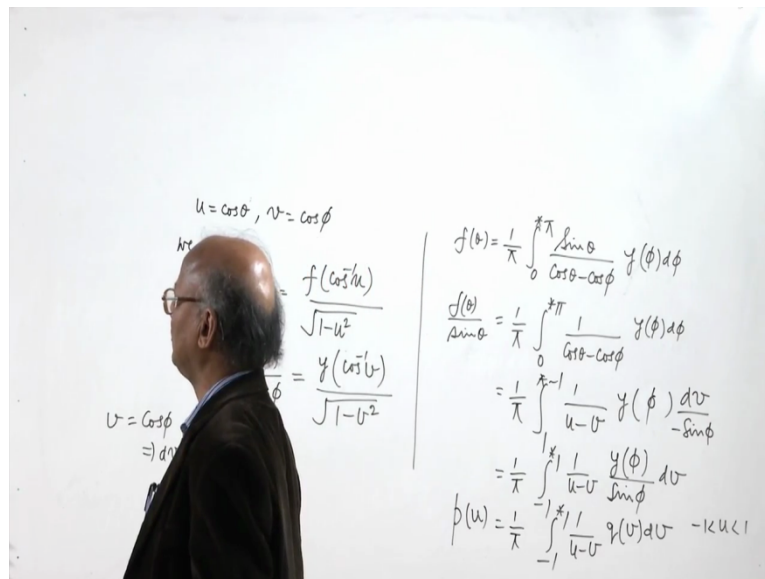 u = cosθ, v = cosϕ
we
= f(cos⁻¹u) / √(1-u²)
ϕ = y(cos⁻¹v) / √(1-v²)
v = cosϕ
⇒ dv
f(θ) = 1/π ∫₀^{*π} sinθ / (cosθ - cosϕ) y(ϕ)dϕ
f(θ)/sinθ = 1/π ∫₀^{*π} 1 / (cosθ - cosϕ) y(ϕ)dϕ
= 1/π ∫₁^{*-1} 1/(u-v) y(ϕ) dv/(-sinϕ)
= 1/π ∫₋₁^{*1} 1/(u-v) y(ϕ)/sinϕ dv
p(u) = 1/π ∫₋₁^{*1} 1/(u-v) q(v)dv -1<u<1